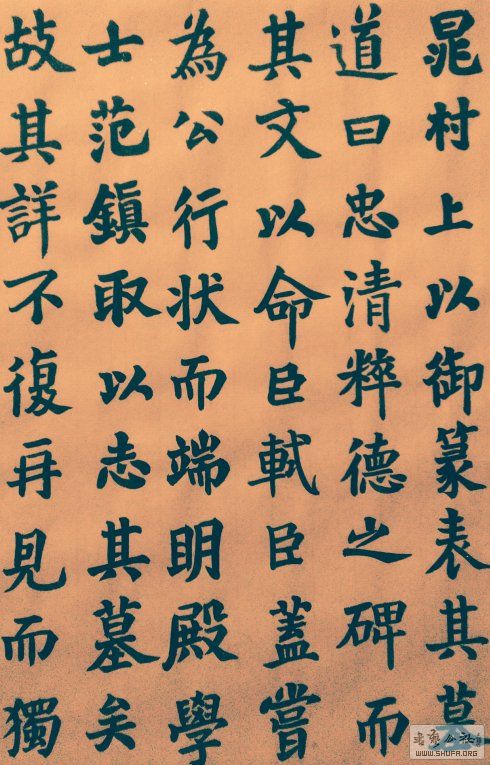 晁村上以御篆表其墓
道曰忠清粹德之碑而
其文以命臣軾臣蓋嘗
為公行状而端明殿學
士范鎮取以志其墓矣
故其詳不復再見而獨
WWW.SHUFA.ORG